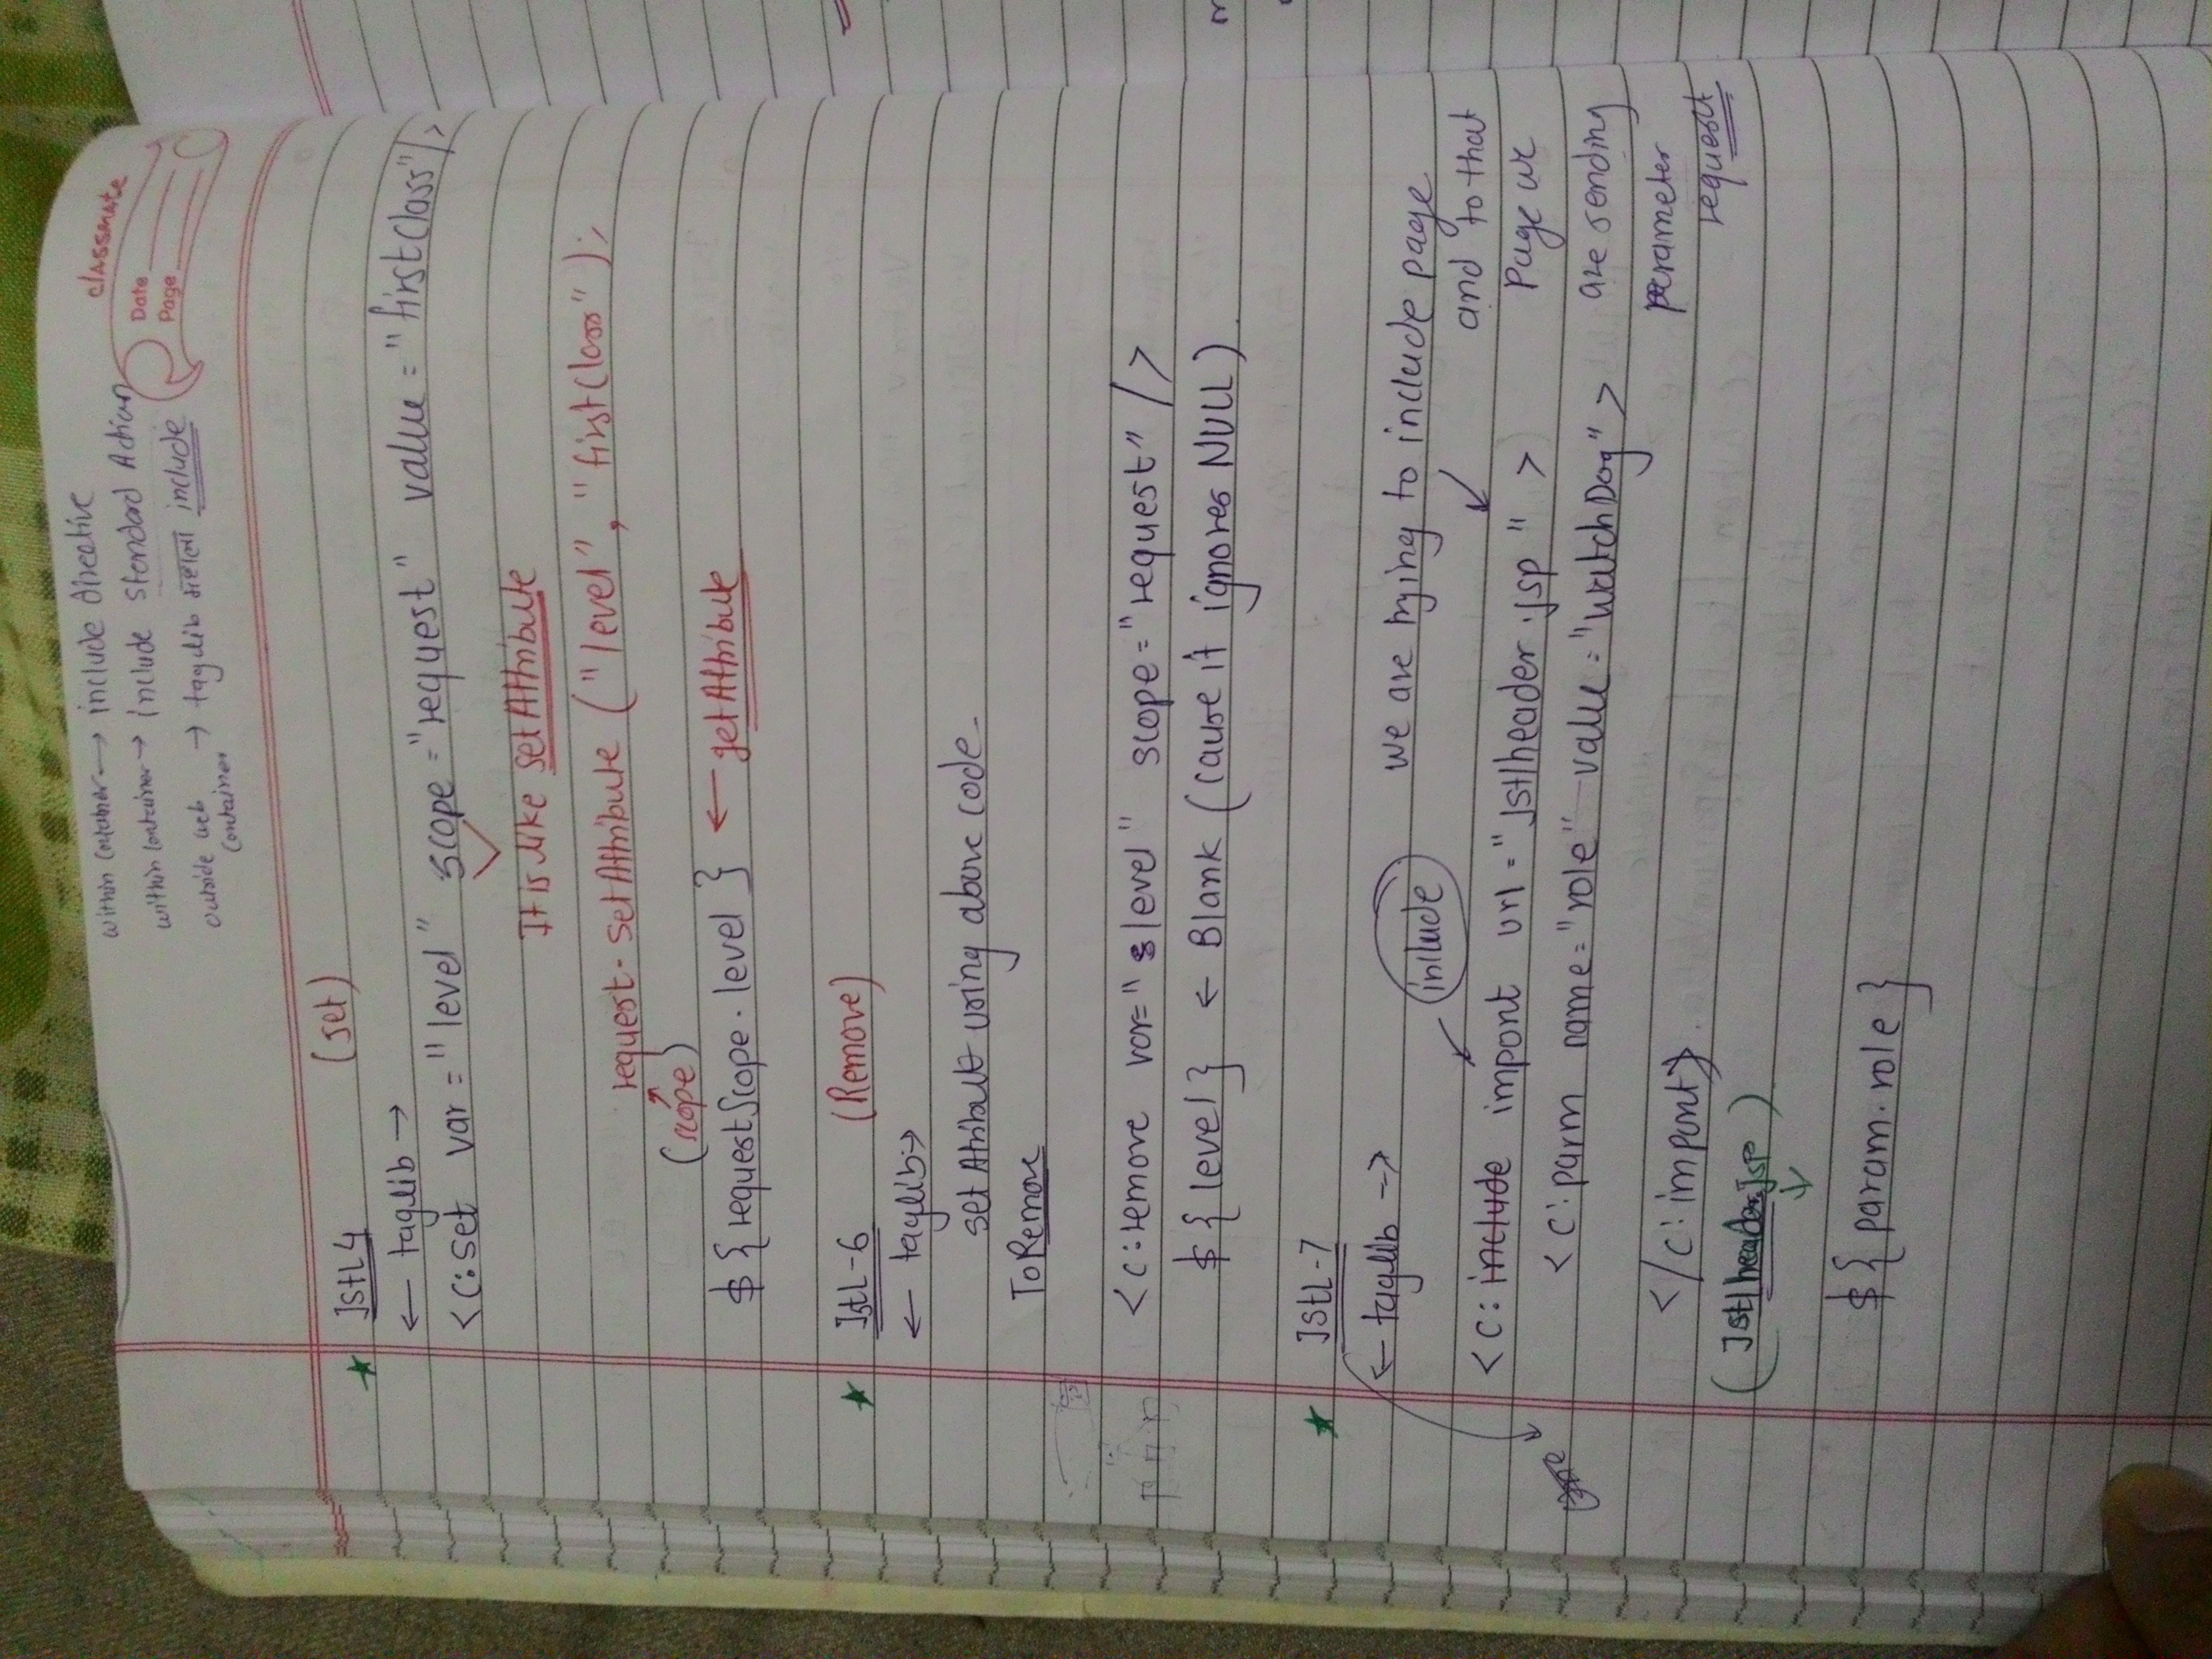 within Container → include directive
within container → include Standard Action
outside web container → taglib मधला include
classmate
Date
Page
★ JstL 4 (set)
← taglib →
<c:set var = "level" scope = "request" value = "firstClass"/>
It is like setAttribute
request. setAttribute ("level", "firstClass");
(scope)
${requestScope.level} ← getAttribute
★ JstL-6 (Remove)
← taglib →
set Attribute using above code.
To Remove
<c:remove var="slevel" scope="request" />
${level} ← Blank (cause it ignores NULL)
★ JStL-7
← taglib →
include
we are trying to include page
and to that
Page we
are sending
perameter
request
<c: include import url = "Jstlheader.jsp" >
<c:parm name="role" value="WatchDog">
</c:import>
(Jstlheader.jsp)
↓
${param.role}